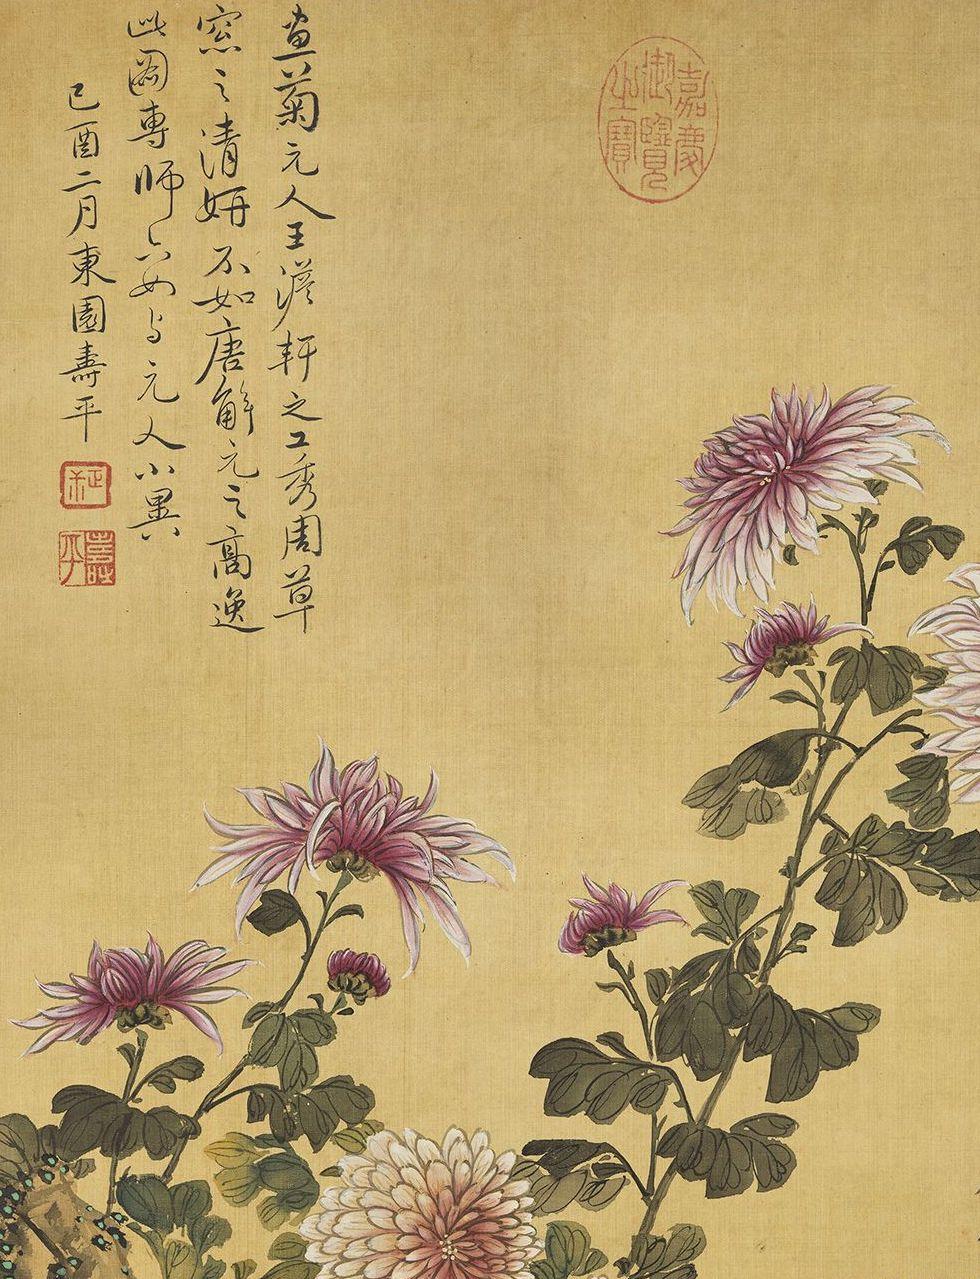 嘉慶
御覽
之寶
畫菊元人王澹軒之工秀周草
窓之清妍不如唐解元之高逸
此圖專師六如与元人小異
己酉二月東園壽平
正叔
壽平